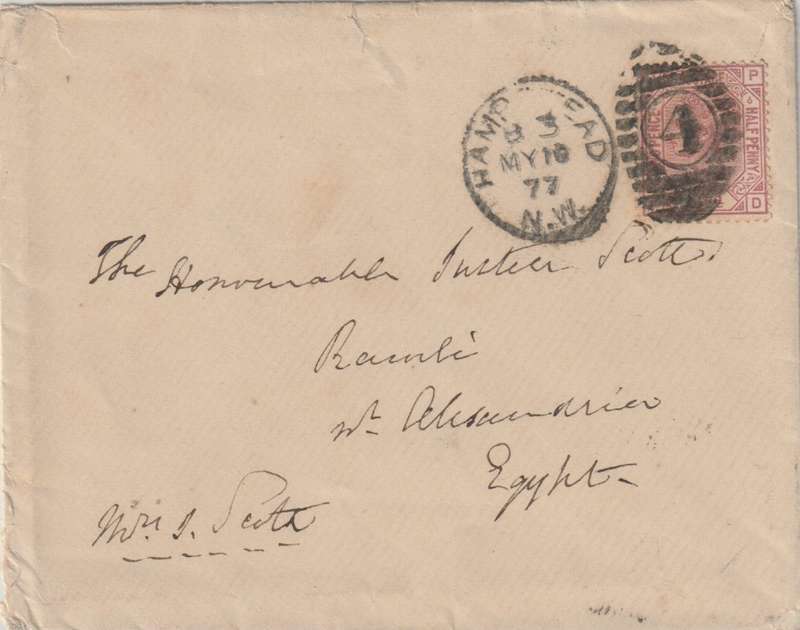 HAMP EAD
B 3
MY 10
77
N.W.
4
PENCE
HALFPENNY
P
D
The Honourable Justice Scott
Ramli
nr Alexandria
Egypt
Scott